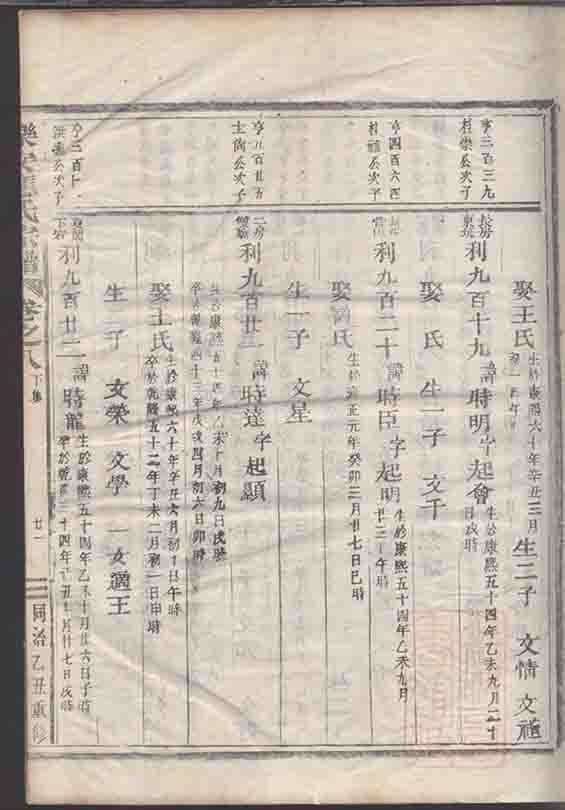 娶王氏 生於康熙六十年辛丑三月 生二子 文情
亨三百三九
利九百十九 諱時明字起會 生於康熙五十四年乙未九月二十 日戌時
娶 氏 生一子 文千
亨四百六四 公次子
利九百二十 諱時臣字起明 生於康熙五十四年乙未九月 廿三 午時
娶 氏 生於雍正元年癸卯二月廿七日巳時
生一子 文星
公次子
二房 利九百廿一 諱時達字起顯 生於康熙五十四年乙未十月初九日戌時
卒於乾隆四十三年戊戌四月初六日卯時
娶王氏 生於康熙六十年辛丑六月初十日午時 卒於乾隆五十二年丁未二月初一日申時
生二子 文榮 文學 一女適王
公次子
利九百廿二 諱時龍 生於康熙五十四年乙未十月廿六日子時 卒於乾隆三十四年 丑 月廿七日戌時
氏宗譜 卷之八 下集 廿一 同治乙丑重修